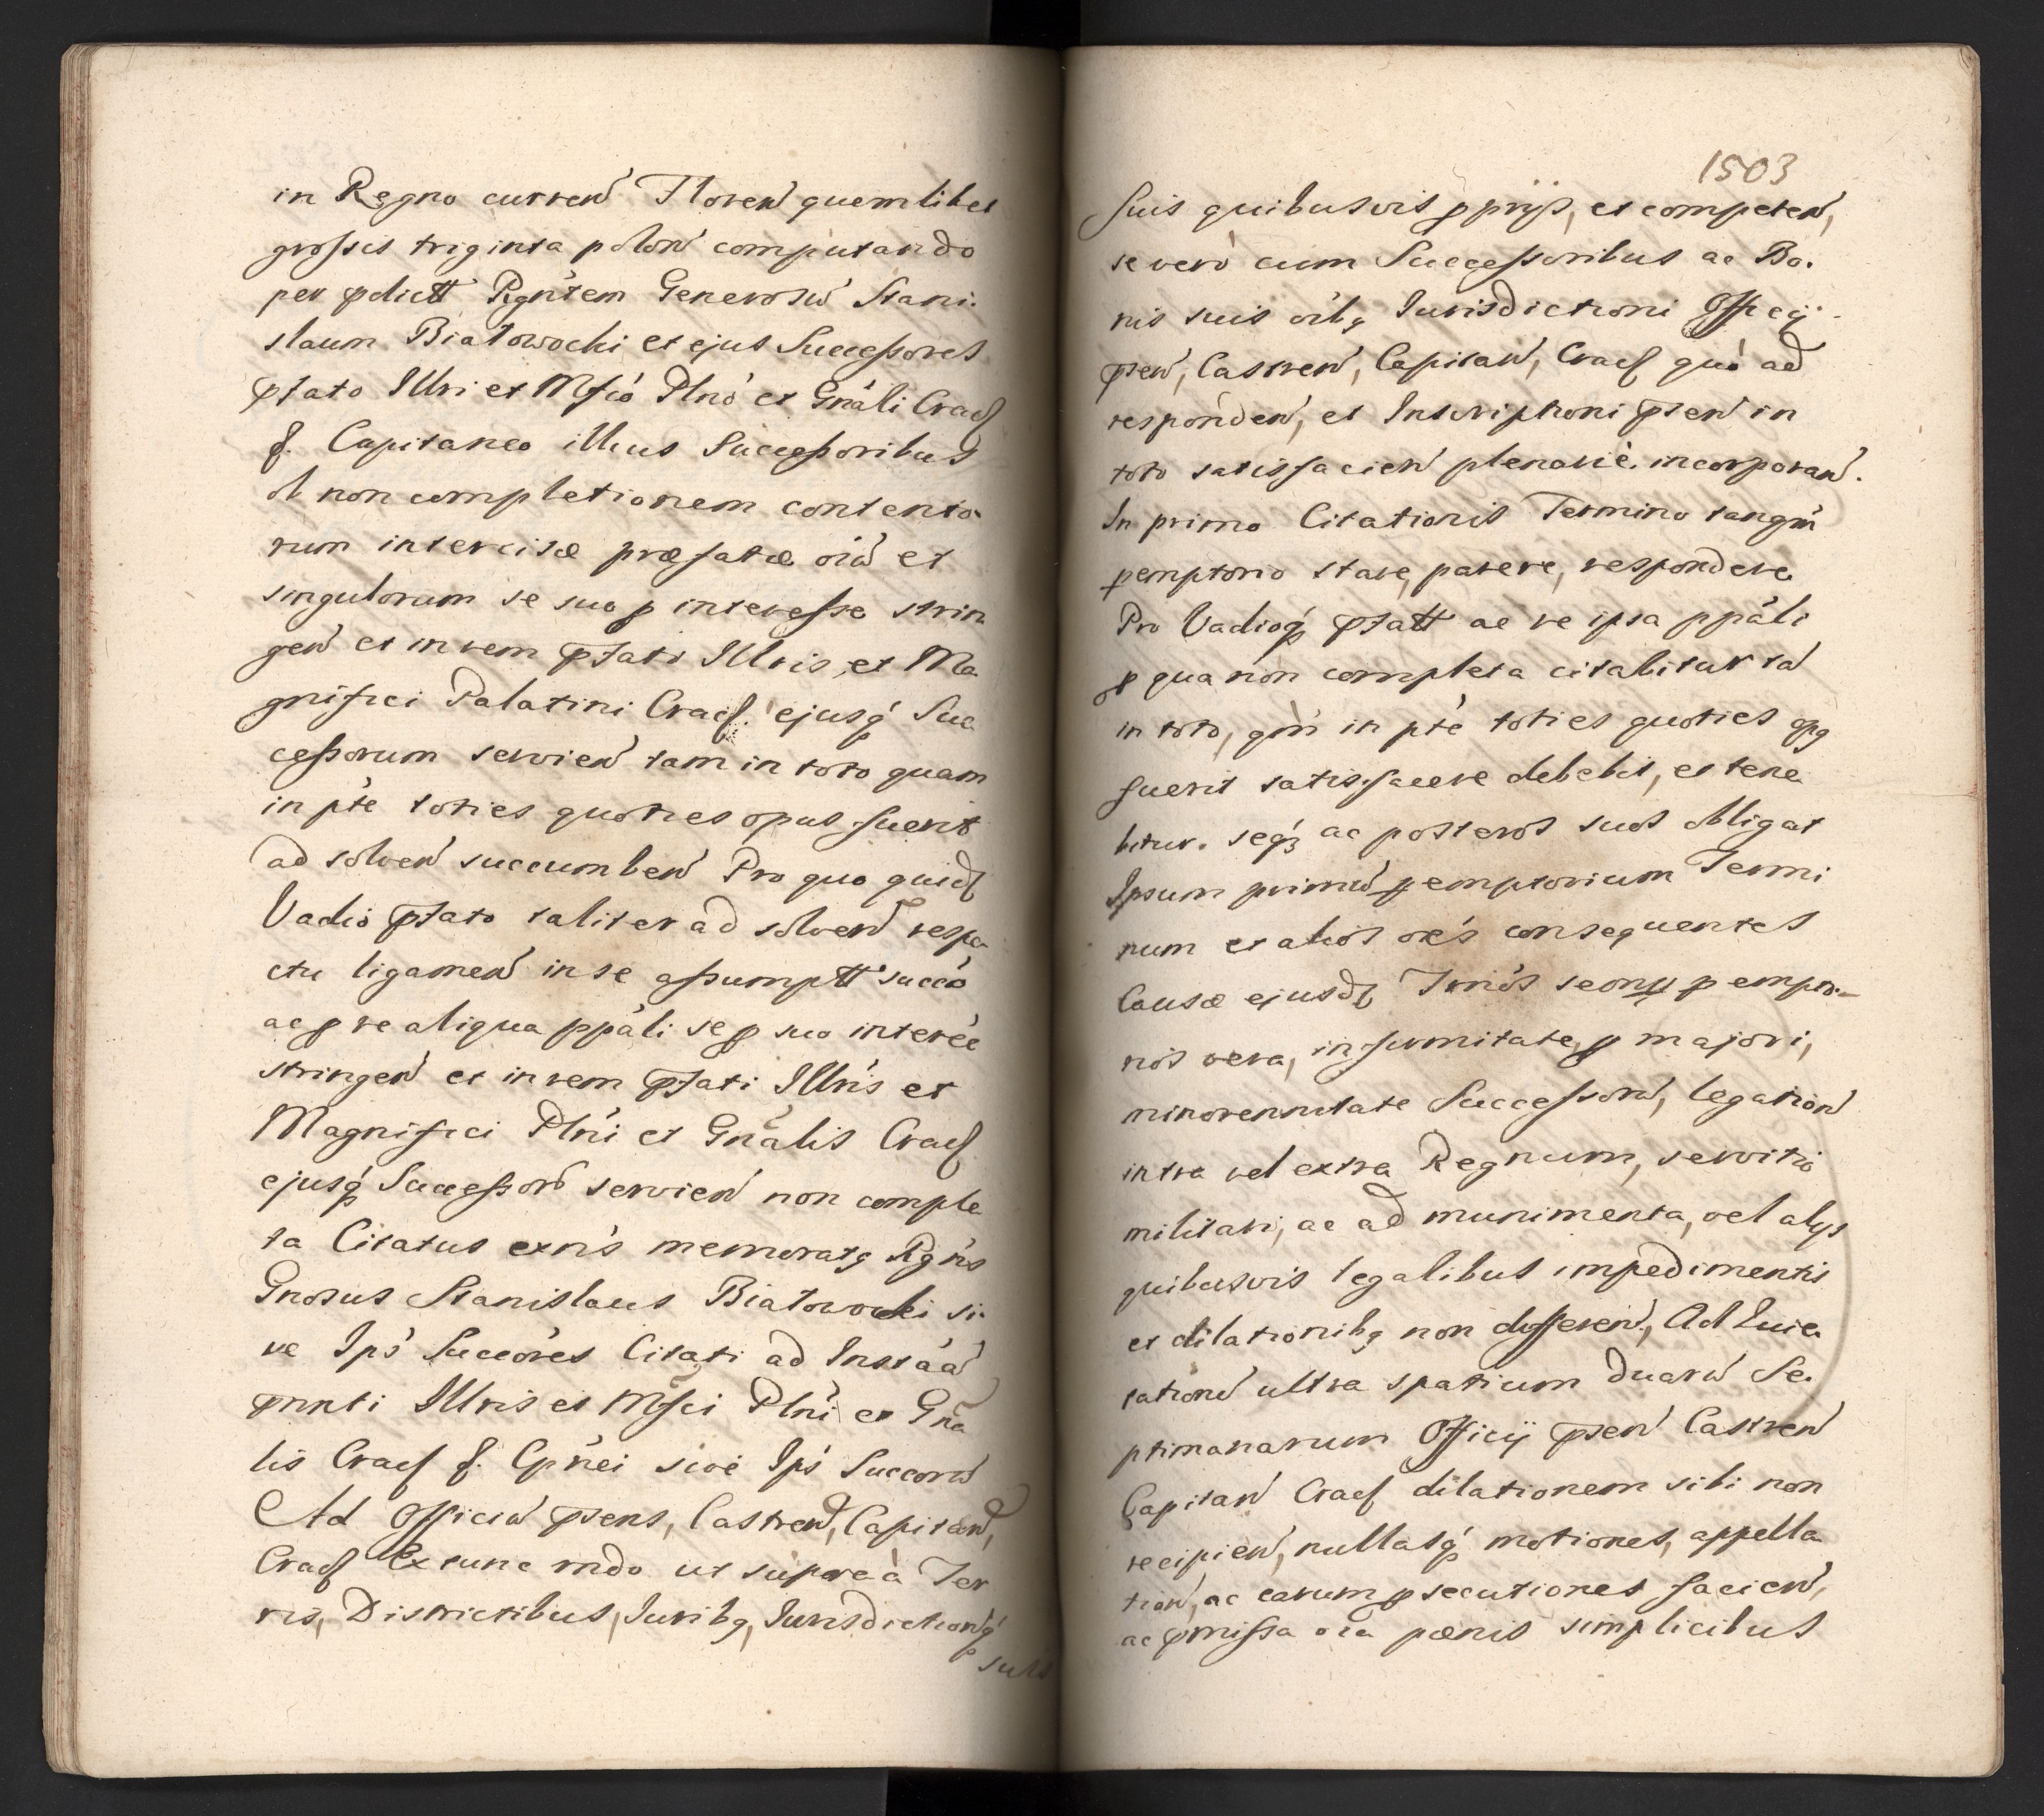 in Regno curren Floren quemlibet
grossis triginta polon computando
per pdictt Rgntem Generosu Stani.
slaum Białowocki et ejus Successores
ptato Illri et Mfco Plno et Gnali Cracf
f. Capitaneo illius Successoribus
ob non completionem contento-
rum intercisæ præfatæ oiu et
singulorum se suo p interesse strin
gen et in rem pfati Illris et Ma
gnifici Palatini Cracf. ejusq Suc
cessorum servien tam in toto quam
in pte toties quoties opus fuerit
ad solven succumben Pro quo quidf
Vadio pfato taliter ad solven respe
ctu ligamen in se assumptt succo
ac p re aliqua ppali se p suo interee
stringen et in rem pfati Illris et
Magnifici Plni et Gnalis Cracf
ejusq Successoru servien non comple
ta Citatus exns memoratq Rgns
Gnosus Stanislaus Białowocki si.
ve Ips Succores Citati ad Instaa
pnnti Illris et Mfci Plni et Gna
lis Cracf f. Cpnei sive Ips Succoru
Ad Officiu psens, Castren, Capitan,
Cracf Ex tunc mdo ut supra a Ter
ris, Districtibus, Juribq, Jurisdictionq
suis
1503
Suis quibusvis ppriis, et competen,
se vero cum Successoribus ac Bo.
nis suis oibq Jurisdictioni Officij
psen, Castren, Capitan, Cracf quo ad
responden, et Inscriptioni psen in
toto satisfacien plenarie incorporan.
In primo Citationis Termino tanqm
pemptorio stare, parere, respondere
Pro Vadioq pfatt ac re ipsa ppali
p qua non completa citabitur ta
in toto, qm in pte toties quoties opq
fuerit satisfacere debebit, et tene
bitur. seqz ac posteros suos obligat
Ipsum primu pemptorium Termi
num et alios oes consequentes
Causæ ejusdf Imos seony p empto-
rios vera, infirmitate, p majori,
minorennitate Successoru, legation
intra vel extra Regnum, servitio
militari, ac ad munimenta, vel alijs
quibusvis legalibus impedimentis
et dilationibq non differen, Ad Luic
tationu ultra spatium duaru Se.
ptimanarum Officij psen Castren
Capitan Cracf dilationem sibi non
recipien, nullasq motiones, appella
tion, ac earum psecutiones facien,
ac pmissa oia pœnis simplicibus